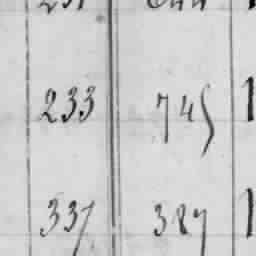 233 745
337 387